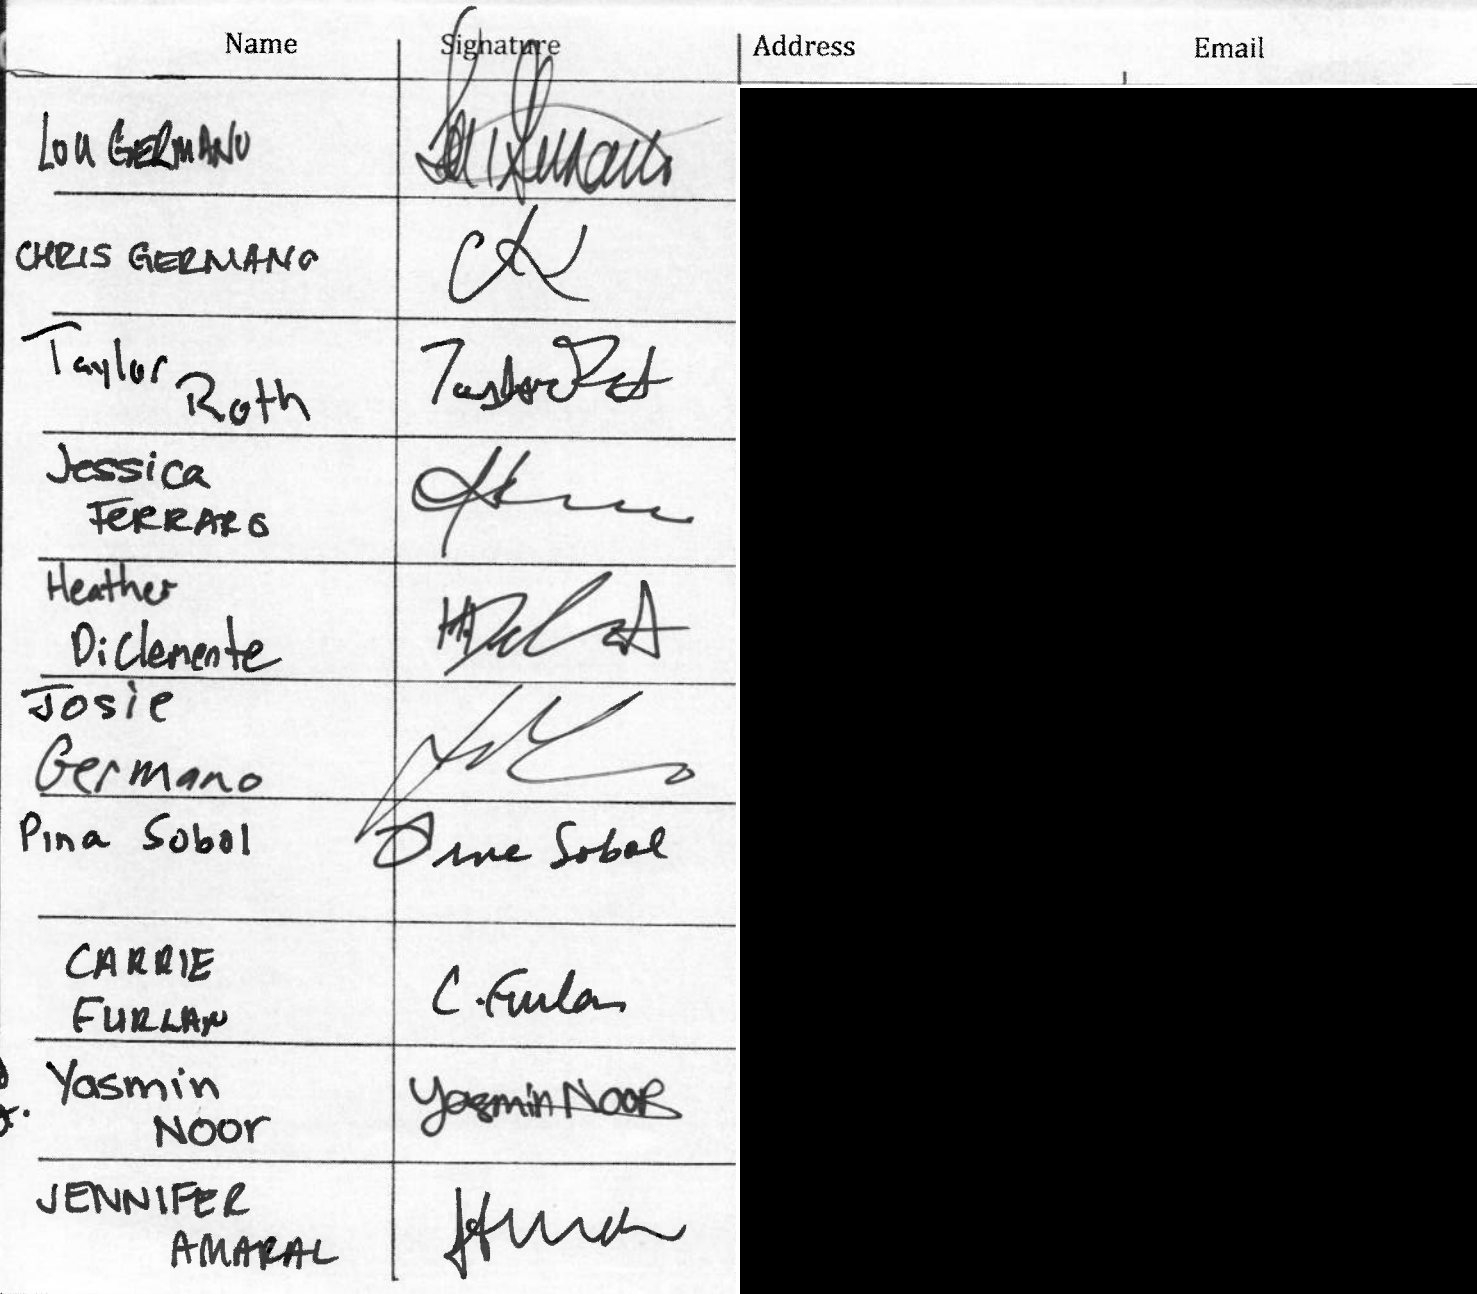 Name Signature Address Email
LOU GERMANO
CHRIS GERMANO
Taylor
Roth
Taylor Roth
Jessica
FERRARO
Heather
DiClemente
Josie
Germano
Pina Sobol Pina Sobol
CARRIE
FURLAN
C. Furlan
Yasmin
NOOR
Yasmin NOOR
JENNIFER
AMARAL